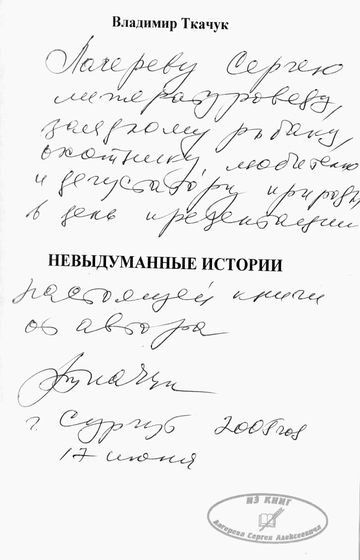 Владимир Ткачук
Лагереву Сергею
литературоведу,
заядлому рыбаку,
охотнику, любителю
и дегустатору природы
в день презентации
НЕВЫДУМАННЫЕ ИСТОРИИ
настоящей книги
от автора
Ткачук
г. Сургут 2005 год
17 июня
ИЗ КНИГ
Лагерева Сергея Алексеевича